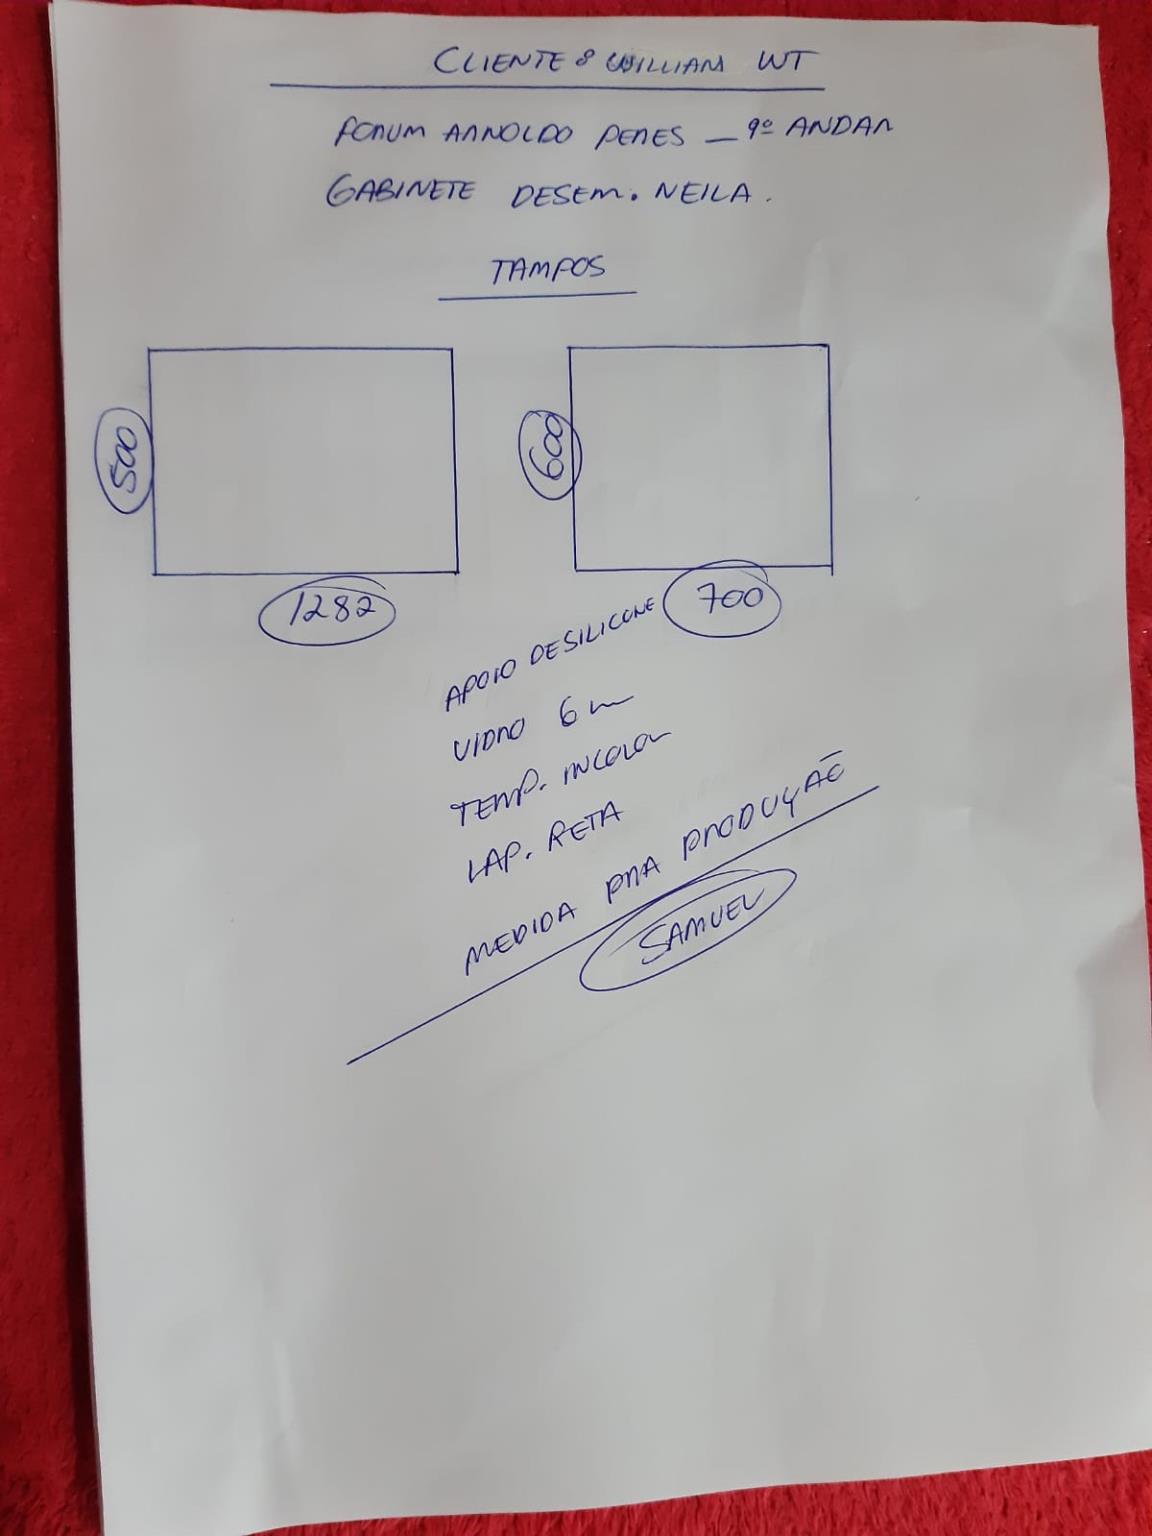 CLIENTE: WILLIAM WT
FORUM ARNOLDO PERES — 9º ANDAR
GABINETE DESEM. NEILA.
TAMPOS
500
1282
600
700
APOIO DE SILICONE
VIDRO 6 m
TEMP. INCOLOR
LAP. RETA
MEDIDA PRA PRODUÇÃO
SAMUEL